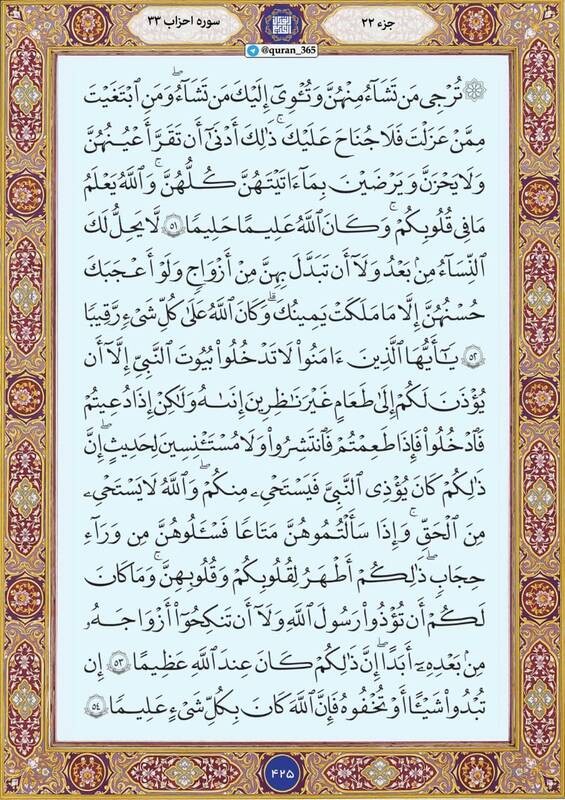 جزء ۲۲
سوره احزاب ۳۳
@quran_365
۞ تُرْجِى مَن تَشَآءُ مِنْهُنَّ وَتُـْٔوِىٓ إِلَيْكَ مَن تَشَآءُ ۖ وَمَنِ ٱبْتَغَيْتَ
مِمَّنْ عَزَلْتَ فَلَا جُنَاحَ عَلَيْكَ ۚ ذَٰلِكَ أَدْنَىٰٓ أَن تَقَرَّ أَعْيُنُهُنَّ
وَلَا يَحْزَنَّ وَيَرْضَيْنَ بِمَآ ءَاتَيْتَهُنَّ كُلُّهُنَّ ۚ وَٱللَّهُ يَعْلَمُ
مَا فِى قُلُوبِكُمْ ۚ وَكَانَ ٱللَّهُ عَلِيمًا حَلِيمًا ۝٥١ لَّا يَحِلُّ لَكَ
ٱلنِّسَآءُ مِنۢ بَعْدُ وَلَآ أَن تَبَدَّلَ بِهِنَّ مِنْ أَزْوَٰجٍ وَلَوْ أَعْجَبَكَ
حُسْنُهُنَّ إِلَّا مَا مَلَكَتْ يَمِينُكَ ۗ وَكَانَ ٱللَّهُ عَلَىٰ كُلِّ شَىْءٍ رَّقِيبًا
۝٥٢ يَـٰٓأَيُّهَا ٱلَّذِينَ ءَامَنُوا۟ لَا تَدْخُلُوا۟ بُيُوتَ ٱلنَّبِىِّ إِلَّآ أَن
يُؤْذَنَ لَكُمْ إِلَىٰ طَعَامٍ غَيْرَ نَـٰظِرِينَ إِنَىٰهُ وَلَـٰكِنْ إِذَا دُعِيتُمْ
فَٱدْخُلُوا۟ فَإِذَا طَعِمْتُمْ فَٱنتَشِرُوا۟ وَلَا مُسْتَـْٔنِسِينَ لِحَدِيثٍ ۚ إِنَّ
ذَٰلِكُمْ كَانَ يُؤْذِى ٱلنَّبِىَّ فَيَسْتَحْىِۦ مِنكُمْ ۖ وَٱللَّهُ لَا يَسْتَحْىِۦ
مِنَ ٱلْحَقِّ ۚ وَإِذَا سَأَلْتُمُوهُنَّ مَتَـٰعًا فَسْـَٔلُوهُنَّ مِن وَرَآءِ
حِجَابٍ ۚ ذَٰلِكُمْ أَطْهَرُ لِقُلُوبِكُمْ وَقُلُوبِهِنَّ ۚ وَمَا كَانَ
لَكُمْ أَن تُؤْذُوا۟ رَسُولَ ٱللَّهِ وَلَآ أَن تَنكِحُوٓا۟ أَزْوَٰجَهُۥ
مِنۢ بَعْدِهِۦٓ أَبَدًا ۚ إِنَّ ذَٰلِكُمْ كَانَ عِندَ ٱللَّهِ عَظِيمًا ۝٥٣ إِن
تُبْدُوا۟ شَيْـًٔا أَوْ تُخْفُوهُ فَإِنَّ ٱللَّهَ كَانَ بِكُلِّ شَىْءٍ عَلِيمًا ۝٥٤
۴۲۵